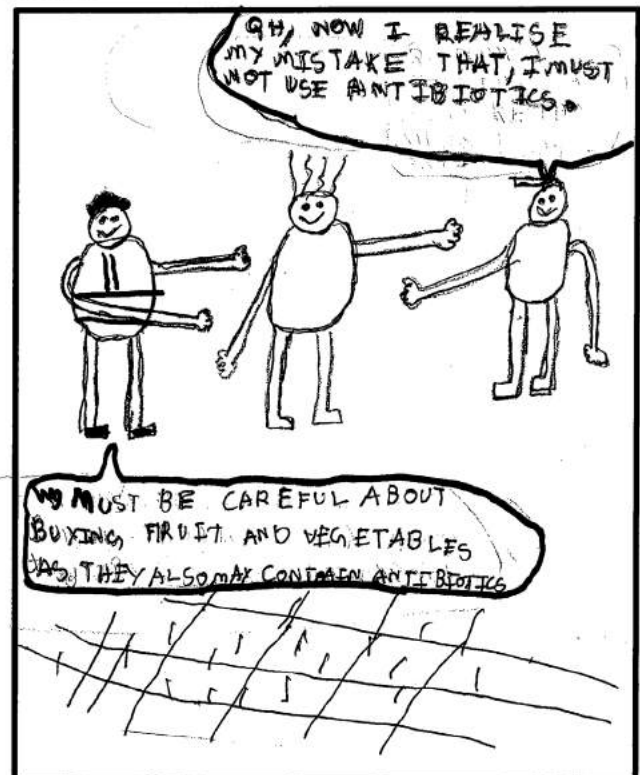 OH, NOW I REALISE
MY MISTAKE THAT, I MUST
NOT USE ANTIBIOTICS.
WE MUST BE CAREFUL ABOUT
BUYING FRUIT AND VEGETABLES
AS THEY ALSO MAY CONTAIN ANTIBIOTICS